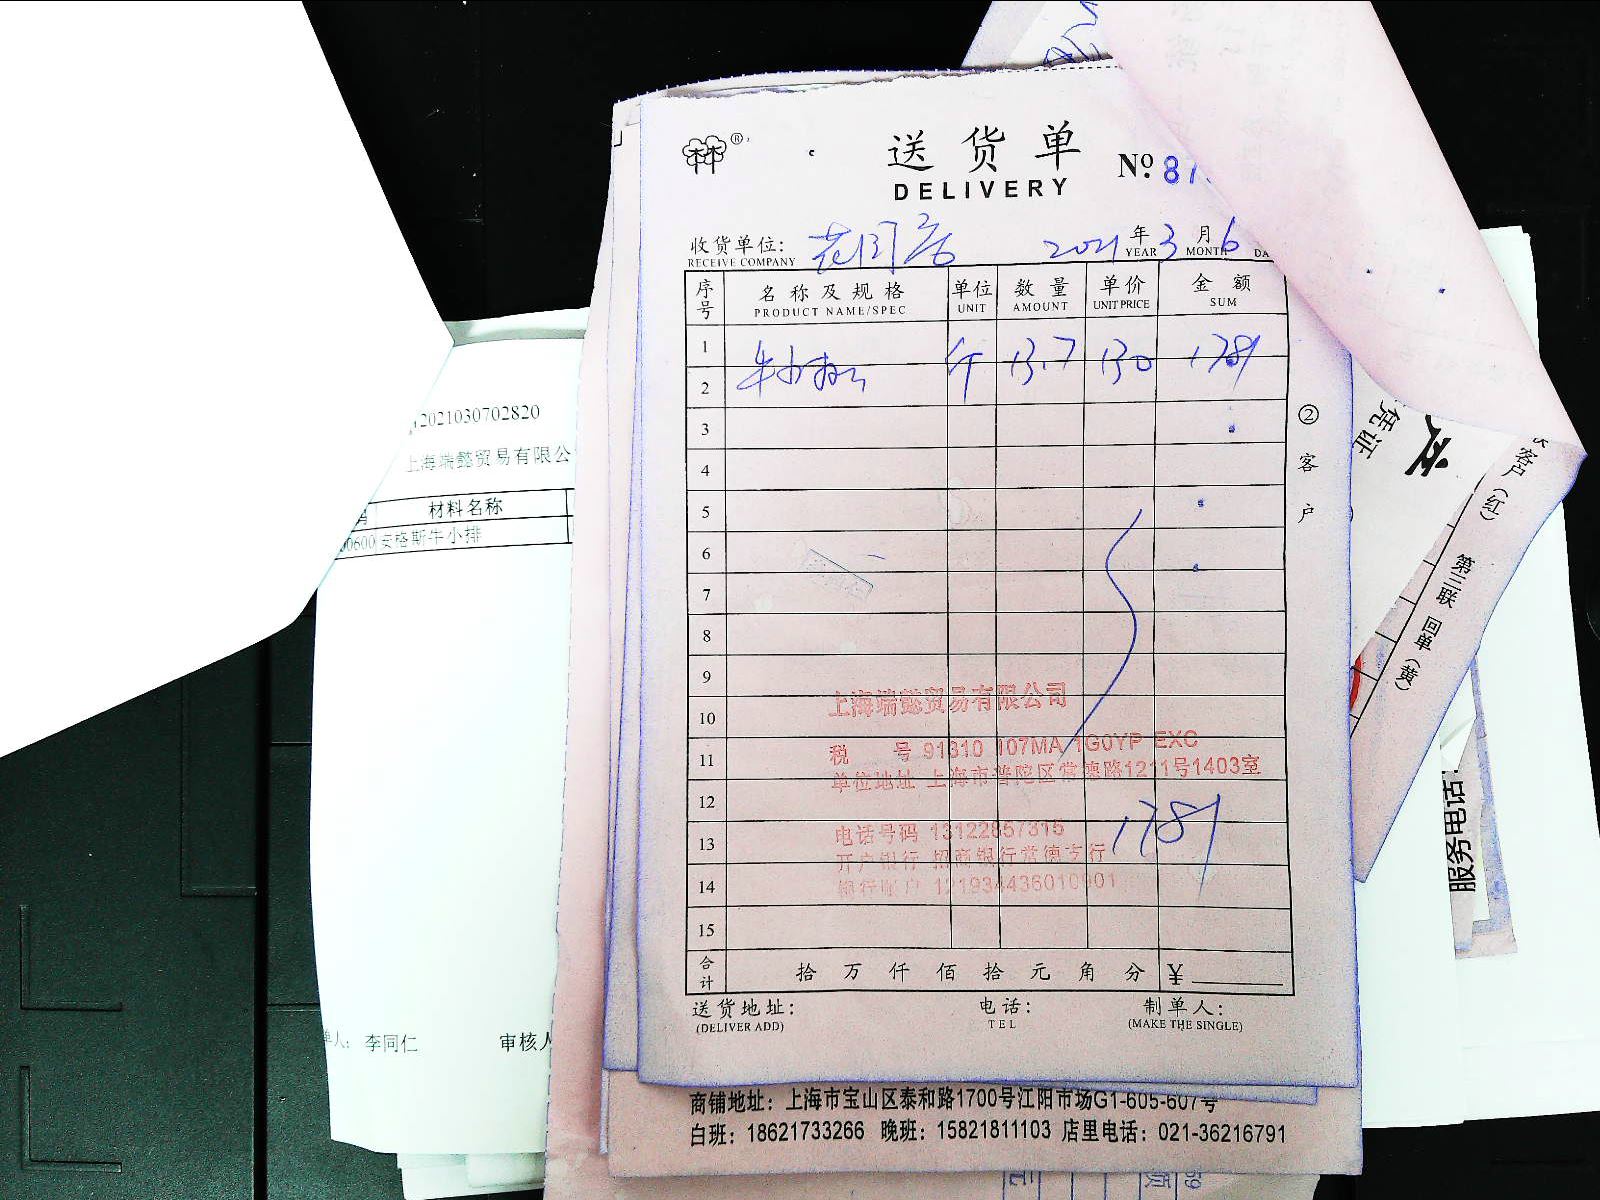 送货单
DELIVERY
№ 87
收货单位:
RECEIVE COMPANY
2021 年 3 月 6
YEAR MONTH DA
序号 名称及规格 单位 数量 单价 金额
PRODUCT NAME/SPEC UNIT AMOUNT UNIT PRICE SUM
1 牛小排 斤 13.7 130 1781
2
3
4
5
6
7
8
9
10
11
12
13
14
15
1781
上海端懿贸易有限公司
税 号 91310 107MA 1G0YP EXC
单位地址 上海市普陀区常德路1211号1403室
电话号码 13122857315
开户银行 招商银行常德支行
银行账户 121934436010901
合计 拾 万 仟 佰 拾 元 角 分 ¥
送货地址: 电话: 制单人:
(DELIVER ADD) TEL (MAKE THE SINGLE)
② 客户
商铺地址：上海市宝山区泰和路1700号江阳市场G1-605-607号
白班：18621733266 晚班：15821811103 店里电话：021-36216791
2021030702820
上海端懿贸易有限公
材料名称
00600 安格斯牛小排
单人: 李同仁 审核人
凭证
客户（红） 第三联 回单（黄）
服务电话: